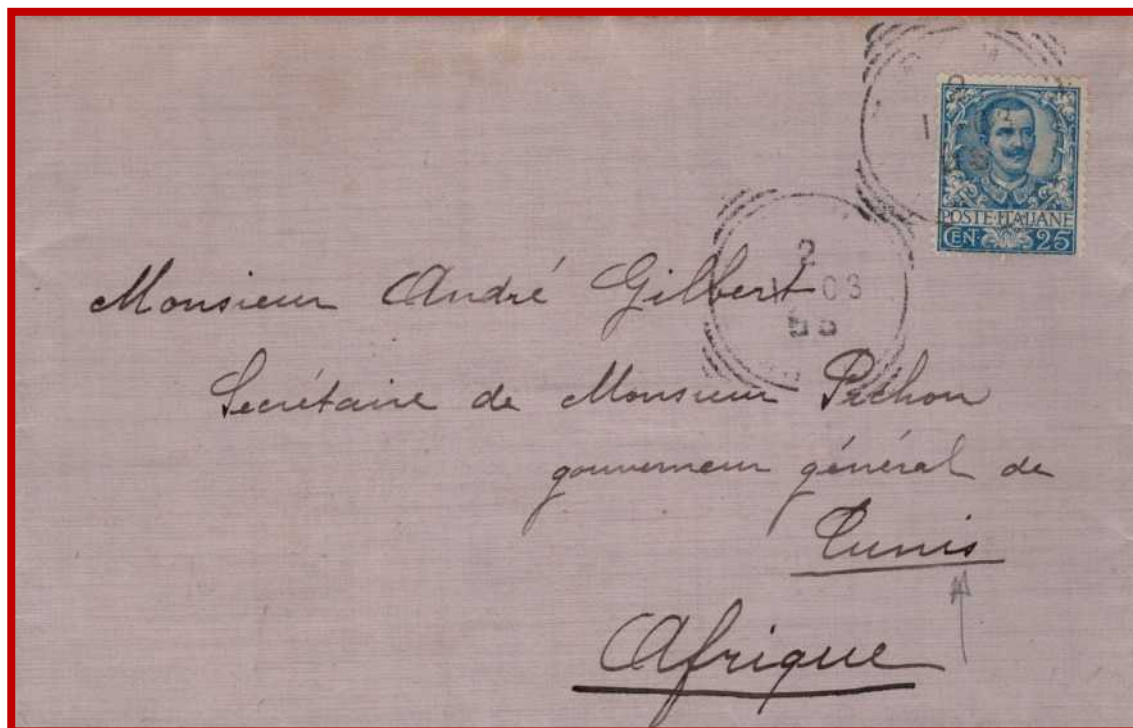 POSTE·ITALIANE
CEN· 25
2
03
Monsieur André Gilbert
Secrétaire de Monsieur Pichon
gouverneur général de
Tunis
Afrique